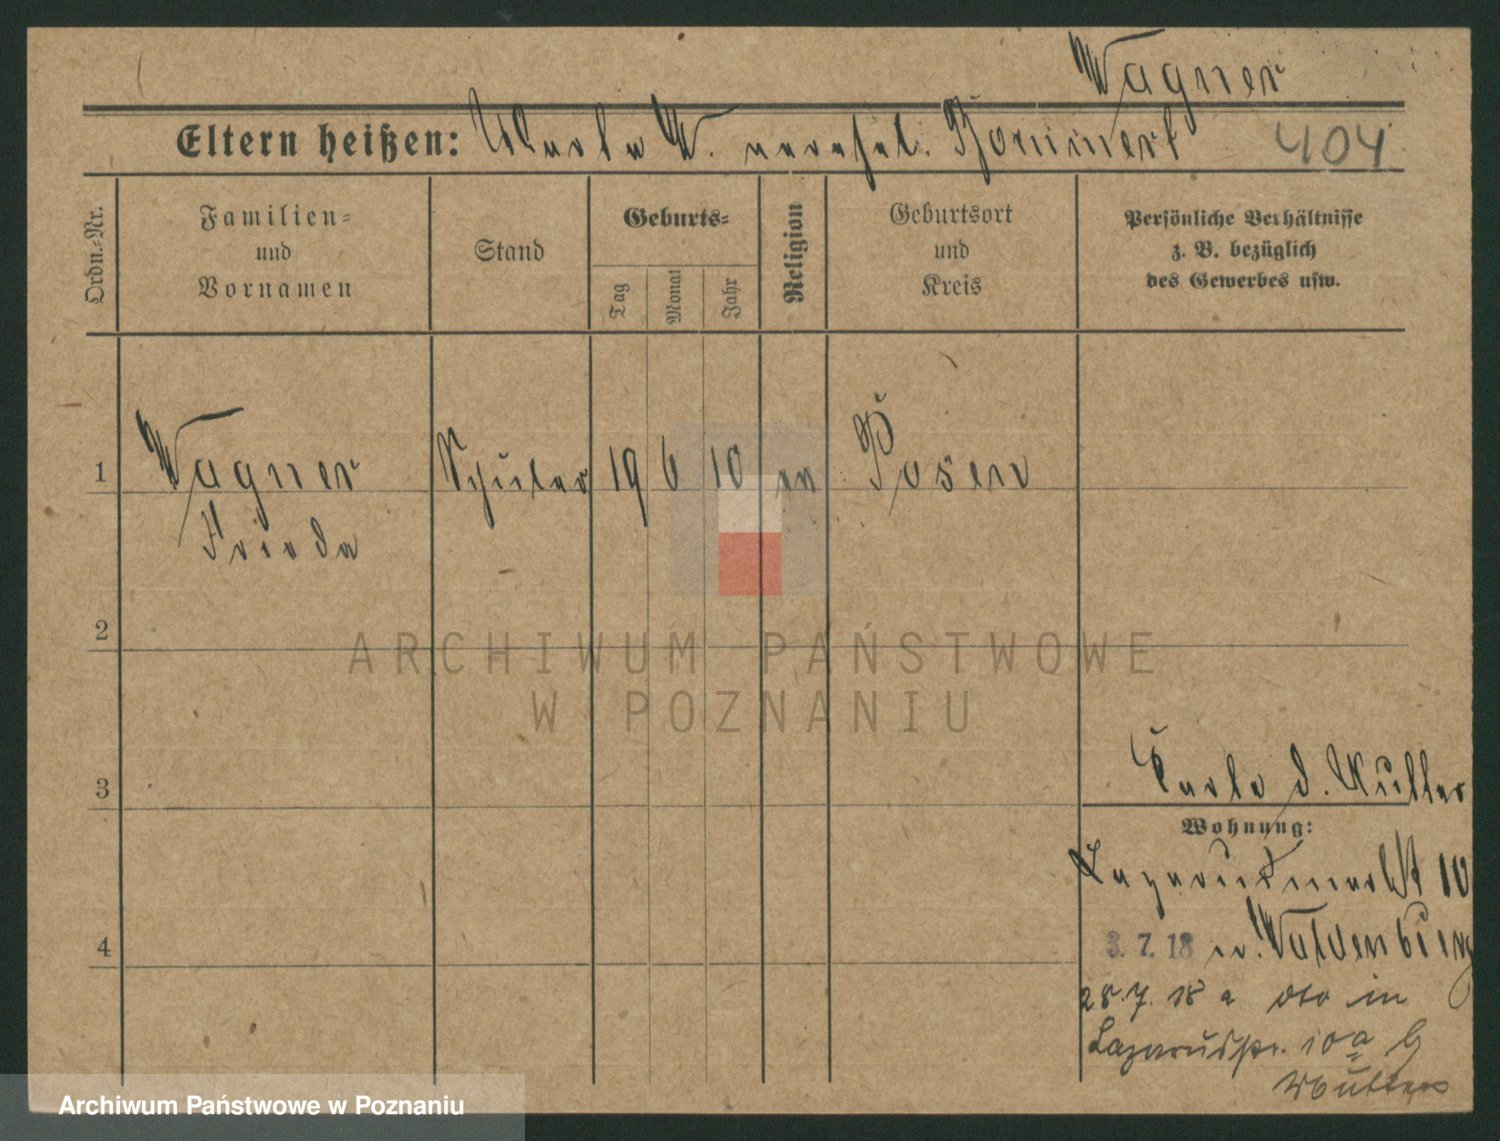 Wagner
Eltern heißen: Maria W. verehel. Pommert 404
Ordn.-Nr.
Familien-
und
Vornamen
Stand
Geburts-
Tag
Monat
Jahr
Religion
Geburtsort
und
Kreis
Persönliche Verhältnisse
z. B. bezüglich
des Gewerbes usw.
1 Wagner Schüler 19 6 10 ev Posen
Frieda
2
ARCHIWUM PAŃSTWOWE
W POZNANIU
3
d. Mutter
Wohnung:
Lazarusmarkt 10
4
3. 7. 18 n. Waldenburg
28.7. 18 a dto in
Lazarusstr. 10a b
Mutter
Archiwum Państwowe w Poznaniu